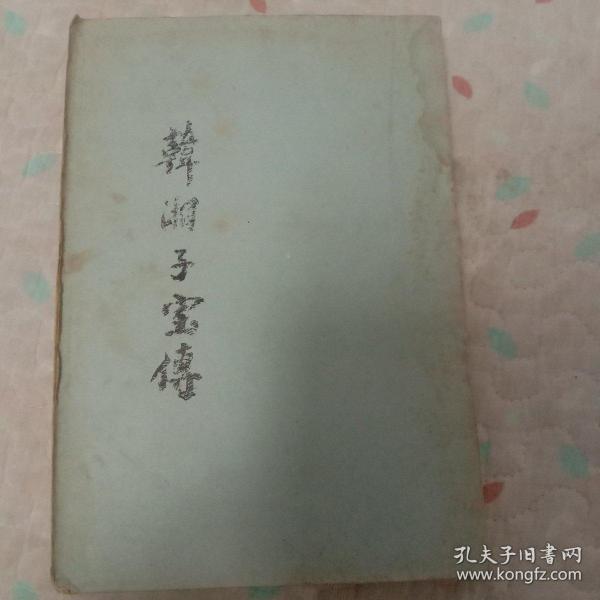 韓湘子宝傳
孔夫子旧书网
www.kongfz.com